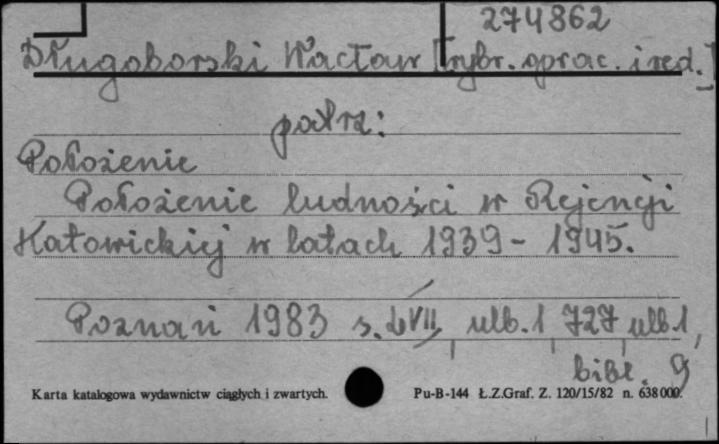 274862
Długoborski Wacław [wybr. oprac. i red.]
patrz:
Położenie
Położenie ludności w Rejencji
Katowickiej w latach 1939 - 1945.
Poznań 1983 s. LVII, nlb. 1 727 nlb 1,
bibl. 9
Karta katalogowa wydawnictw ciągłych i zwartych. Pu-B-144 Ł.Z.Graf. Z. 120/15/82 n. 638000.